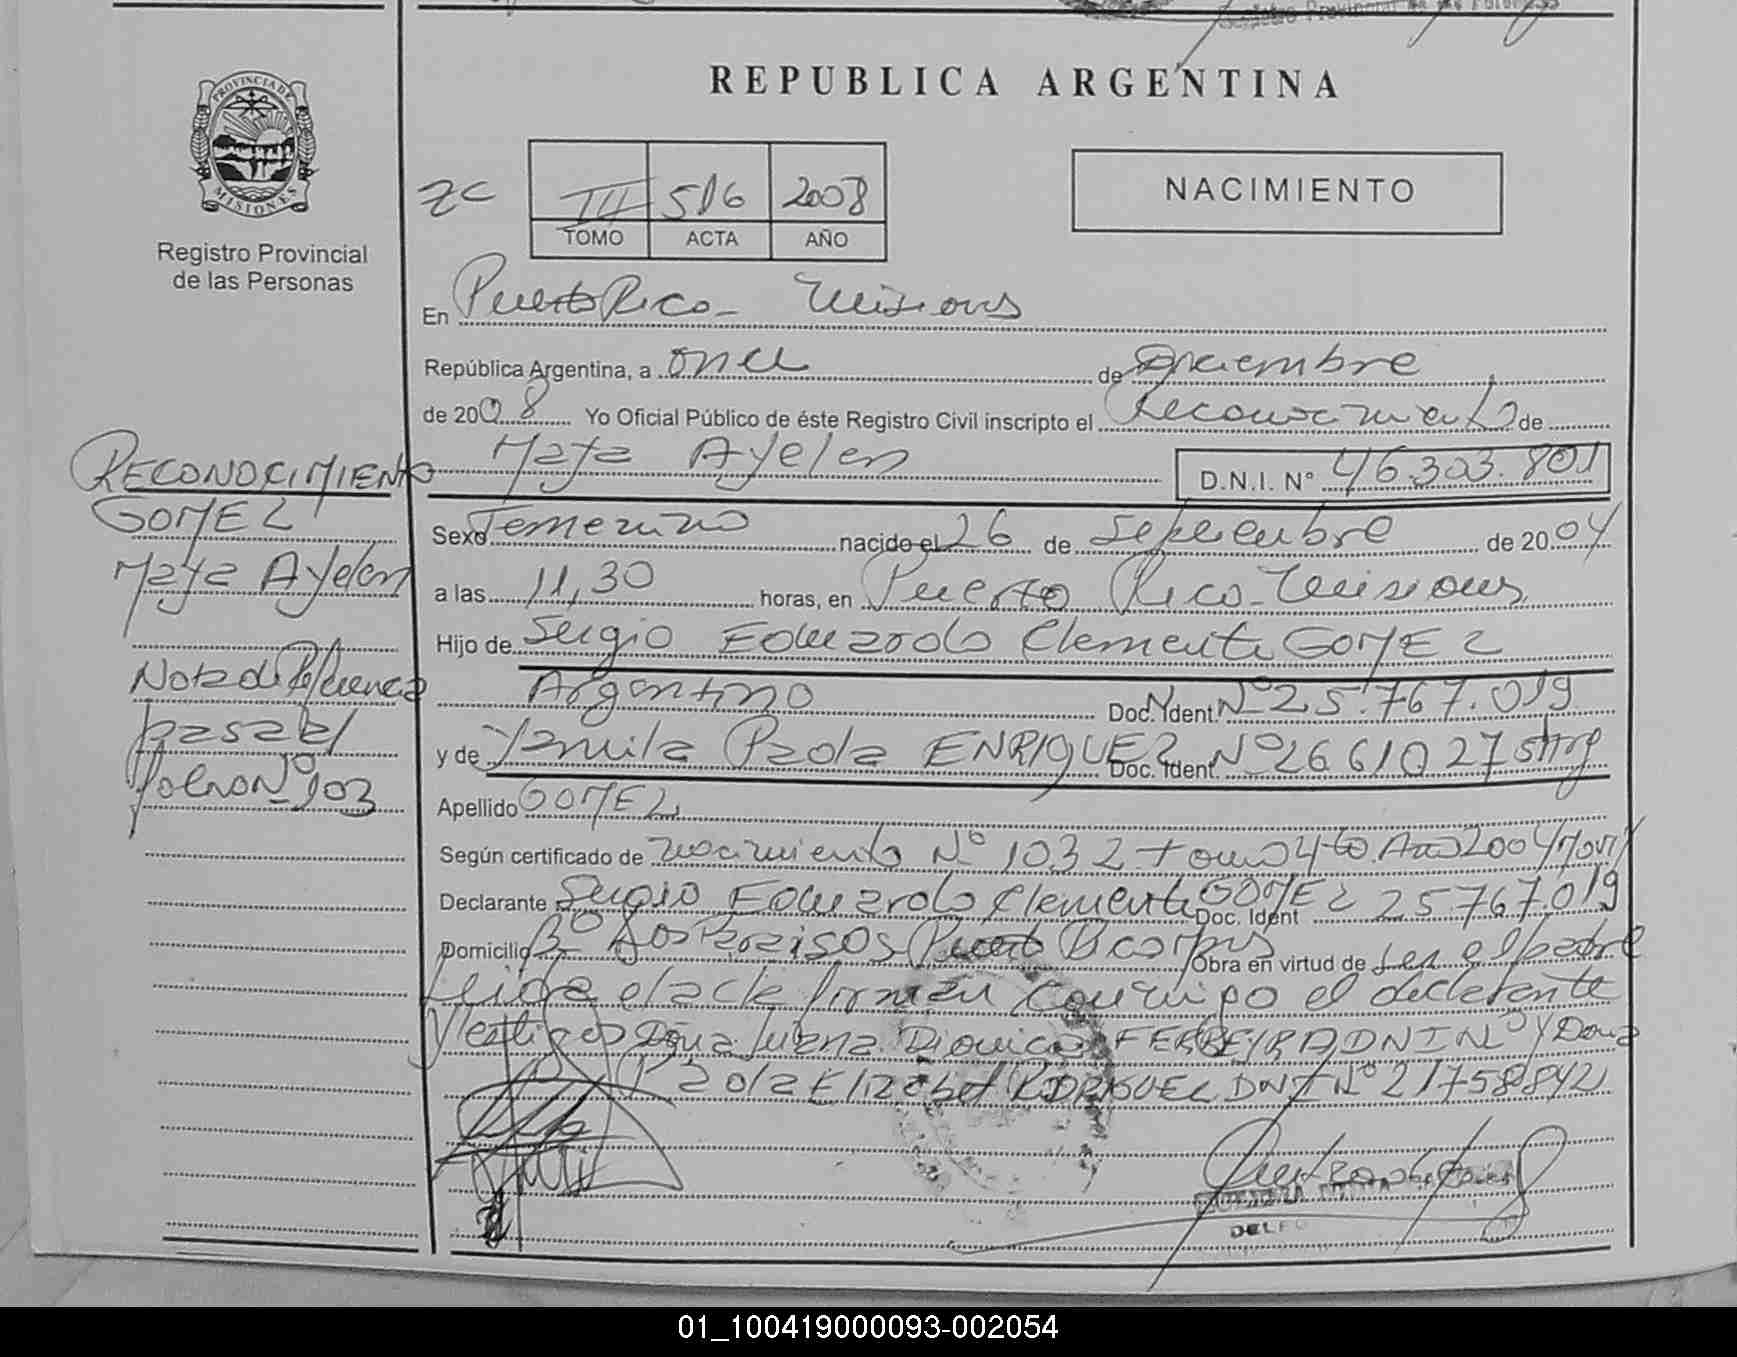 REPUBLICA ARGENTINA
PROVINCIA DE
MISIONES
Registro Provincial
de las Personas
III 516 2008
TOMO ACTA AÑO
NACIMIENTO
En Puerto Rico - Misiones
República Argentina, a once de Diciembre
de 2008 Yo Oficial Público de éste Registro Civil inscripto el Reconocimiento de
Maya Ayelen D.N.I. Nº 46.303.801
Sexo Femenino nacido el 26 de Septiembre de 2004
a las 11,30 horas, en Puerto Rico - Misiones
Hijo de Sergio Eduardo Clemente GOMEZ
Argentino Doc. Ident. Nº 25.767.019
y de Yamila Paola ENRIQUEZ Doc. Ident. Nº 26610275
Apellido GOMEZ
Según certificado de nacimiento Nº 1032 tomo 4to Año 2004
Declarante Sergio Eduardo Clemente GOMEZ Doc. Ident 25767.019
Domicilio Bº Los Paraisos Puerto Rico Obra en virtud de ser el padre
Leida el acta firman conmigo el declarante
y testigos Doña Juana Dionicia FERREYRA DNI Nº y Doña
Paola Elizabet RODRIGUEZ DNI Nº 21758842
RECONOCIMIENTO
GOMEZ
Maya Ayelen
Nota de Referencia
pasa al
folio Nº 103
01_100419000093-002054